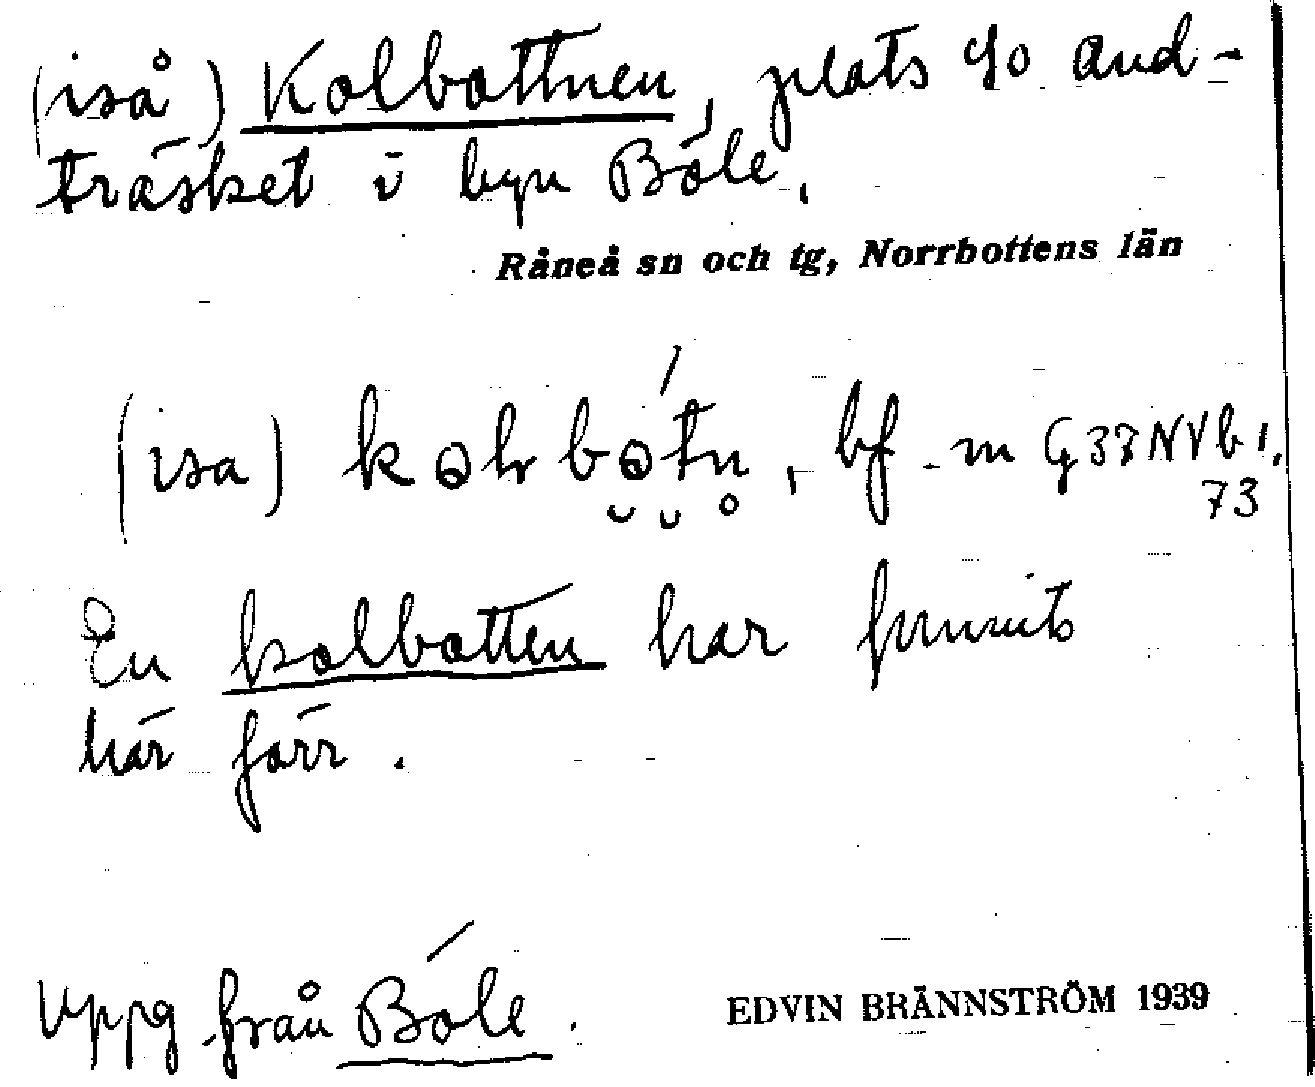 (iså) Kolbottnen, plats so And-
träsket i byn Böle.
Råneå sn och tg, Norrbottens län
(isa) bf. m G33NVb1.
73
En kolbotten har funnits
här förr.
Uppg från Böle.
EDVIN BRÄNNSTRÖM 1939